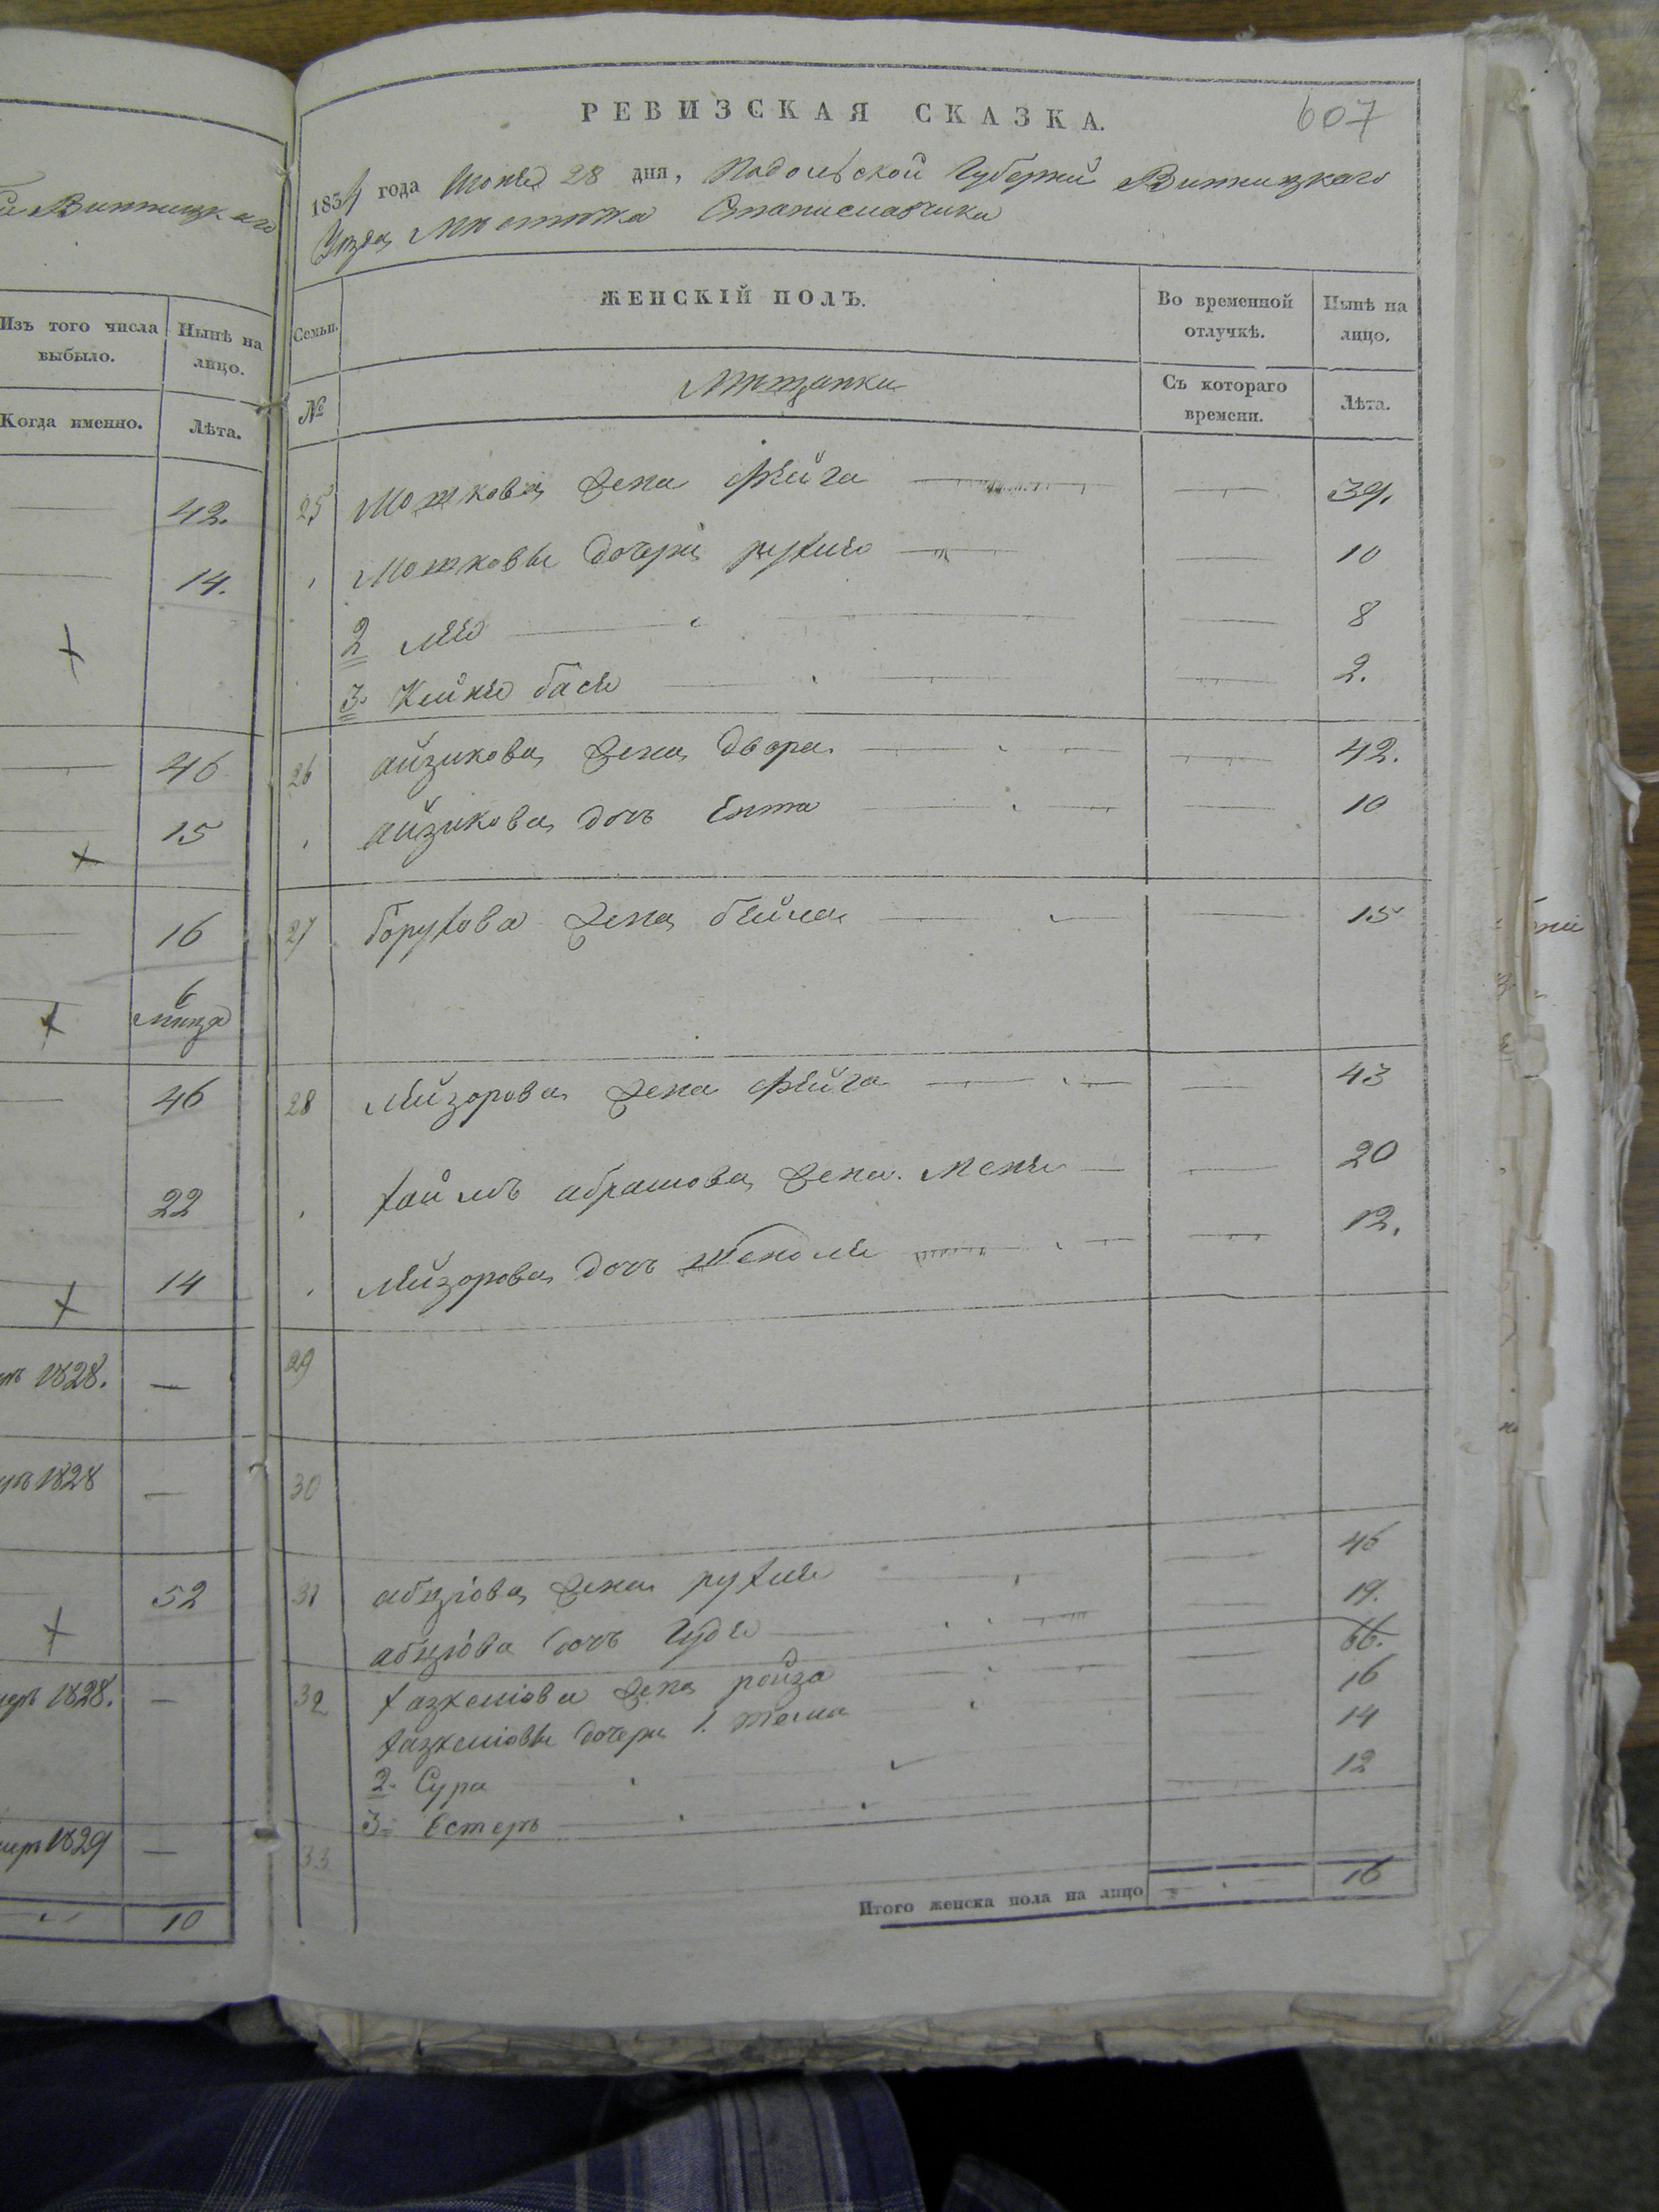 й Винницкаго
Изъ того числа выбыло.
Нынѣ на лицо.
Когда именно.
Лѣта.
42.
14.
46
15
16
6
мѣсяца
46
22
14
1828.
1828
52
1828.
1829
10
607
РЕВИЗСКАЯ СКАЗКА.
1834 года Июня 28 дня, Подольской Губернии Винницкаго
Уѣзда Мѣстечка Станиславчика
Семьи.
ЖЕНСКІЙ ПОЛЪ.
Во временной отлучкѣ.
Нынѣ на лицо.
№
Мѣщанки
Съ котораго времени.
Лѣта.
25 Мошкова жена Фейга 39.
Мошковы дочери рухля 10
2 лея 8
3. Кейля бася 2.
26 айзикова жена двора 42.
айзикова дочь Ента 10
27 борухова жена бейла 15
28 Лейзорова жена Фейга 43
хаймъ абрамова жена Меня 20
Лейзорова дочь 12.
29
30
31 жена рухля 46
дочь 19.
32 жена ройза
дочери 1. 16
2. Сура 14
3. Естеръ 12
33
Итого женска пола на лицо 16